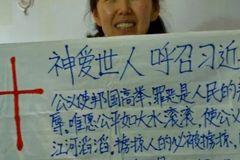 神爱世人 呼召习近
公义使邦国高举,罪恶是人民的
辱。惟愿公平如大水滚滚,使公
江河滔滔,掳掠人的必被掳掠,